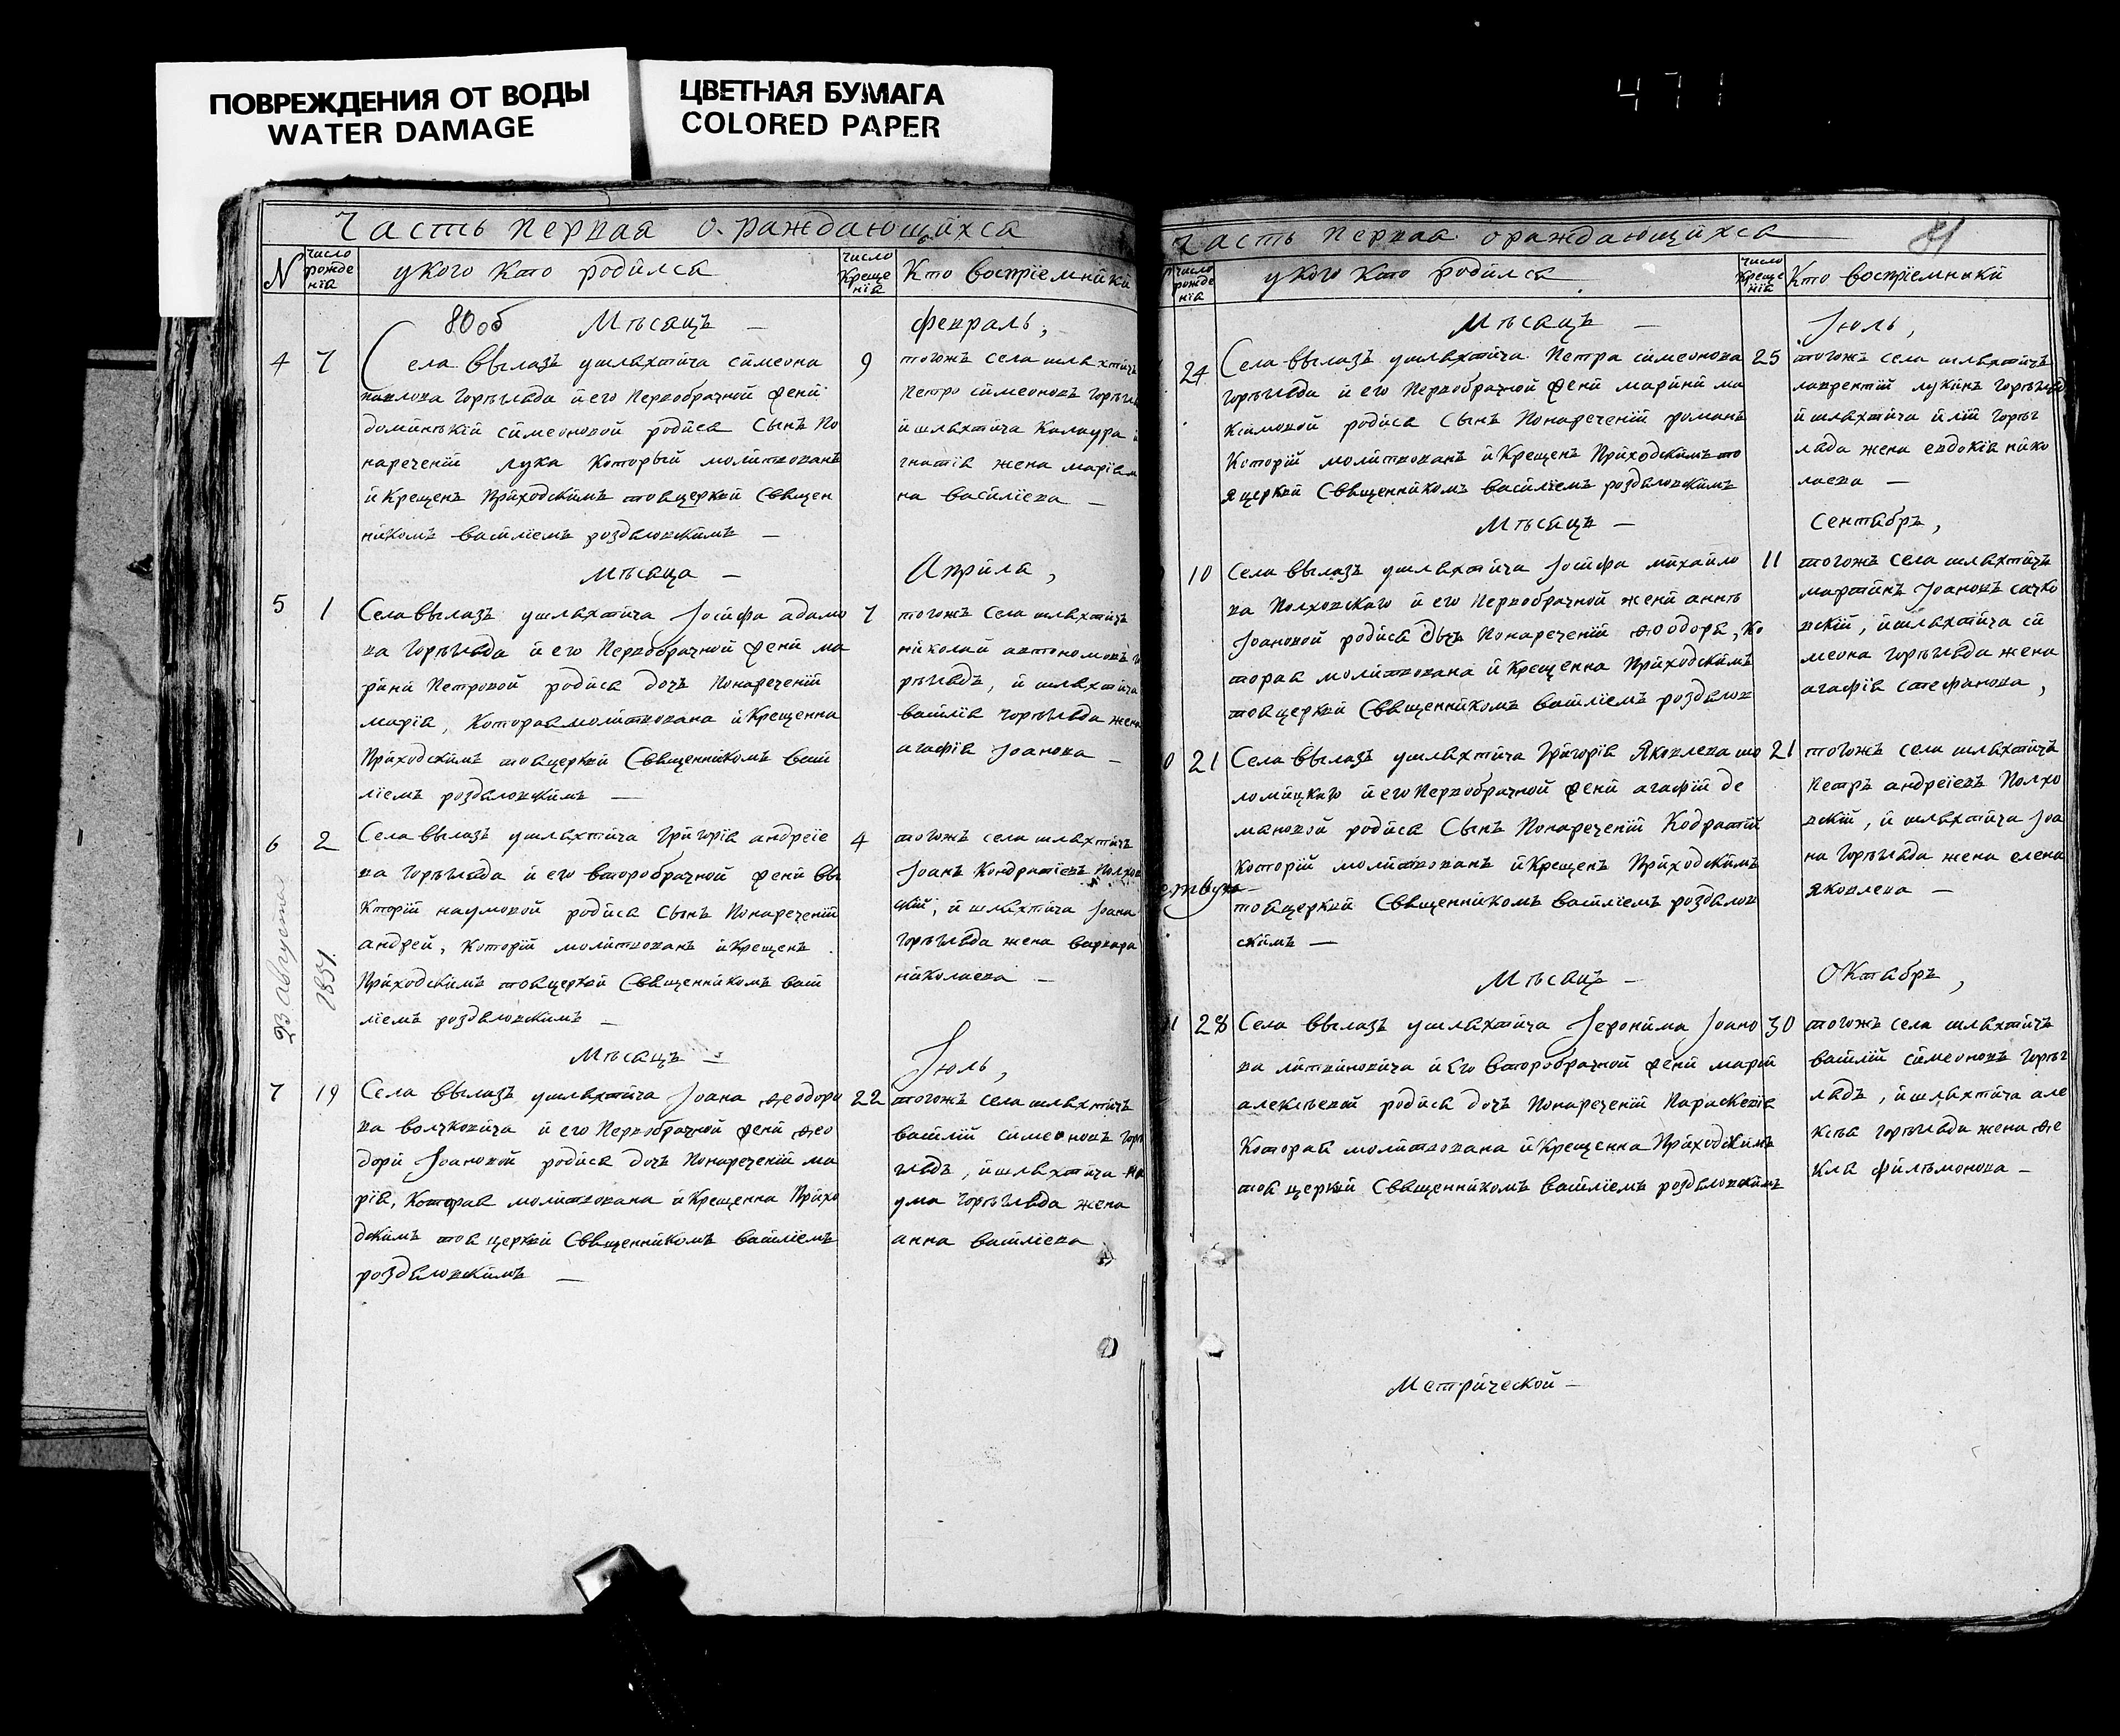 ПОВРЕЖДЕНИЯ ОТ ВОДЫ
WATER DAMAGE
ЦВЕТНАЯ БУМАГА
COLORED PAPER
471
Часть первая о раждающихся
N
число рожде нія
укого кто родился
число креще нія
Кто воспріемники
80об Мѣсяцъ — февраль,
4 7 Села Вылазъ ушляхтича симеона 9
павлова Горъгляда и его первобрачной жени
доминікіи симеоновой родися сынъ по
нареченіи лука который молитвованъ
и крещенъ приходскимъ тояцеркви Священ
никомъ василіемъ роздяловскимъ —
тогожъ села шляхтичъ
петро симеоновъ Горъгля
и шляхтича
гнатія жена марія
на василіева —
Мѣсяца — Априля,
5 1 Села Вылазъ ушляхтича Іосифа адамо 7
ва Горъгляда и его первобрачной жени ма
рини петровой родися дочь понареченіи
марія, которая молитвована и крещенна
приходскимъ тояцеркви Священникомъ васи
ліемъ роздяловскимъ —
тогожъ села шляхтичъ
николай автономовъ
рьглядъ, и шляхтича
василія горъгляда жена
агафія Іоанова —
6 2 Села Вылазъ ушляхтича григорія андреіе 4
ва горъгляда и его второбрачной жени ви
кторіи наумовой родися сынъ понареченіи
андрей, которій молитвованъ и крещенъ
приходскимъ тояцеркви Священникомъ васи
ліемъ роздяловскимъ —
23 августа
1851.
тогожъ села шляхтичъ
Іоанъ Кондратіевъ Полхов
скій, и шляхтича Іоана
горъгляда жена варвара
николаева —
Мѣсяцъ — Іюль,
7 19 Села Вылазъ ушляхтича Іоана ѳеодоро 22
ва волчковича и его первобрачной жени ѳео
дори Іоановой родися дочь понареченіи ма
рія, которая молитвована и крещенна прихо
дскимъ тоя церкви Священникомъ василіемъ
роздяловскимъ —
тогожъ села шляхтичъ
василій симеоновъ горъ
глядъ, и шляхтича на
ума горъгляда жена
анна василіева
Часть первая ораждающихся
81
число рожде нія
укого кто родился
число креще нія
Кто воспріемники
Мѣсяцъ — Іюль,
24 Села Вылазъ ушляхтича Петра симеонова 25
горъгляда и его первобрачной жени марини ма
ксімовой родися сынъ понареченіи романъ
которій молитвованъ и крещенъ приходскимъ то
я церкви Священникомъ василіемъ роздяловскимъ
тогожъ села шляхтичъ
лаврентій лукинъ горъгляд
и шляхтича иліи горъг
ляда жена евдокія нико
лаева —
Мѣсяцъ — Сентябръ,
10 Села Вылазъ ушляхтича Іосифа михайло 11
ва Полховскаго и его первобрачной жени аннъ
Іоановой родися дочь понареченіи ѳеодора, ко
торая молитвована и крещенна приходскимъ
тояцеркви Священникомъ василіемъ роздялов
тогожъ села шляхтичъ
мартинъ Іоановъ сачко
вскій, и шляхтича си
меона горъгляда жена
агафія стефанова,
0 21 Села Вылазъ ушляхтича Григорія Яковлева шо 21
ломицкаго и его первобрачной жени агафіи де
мяновой родися сынъ понареченіи Кодратій
которій молитвованъ и крещенъ приходскимъ
тояцеркви Священникомъ василіемъ роздялов
скимъ —
тогожъ села шляхтичъ
Петръ андреіевъ Полхо
вскій, и шляхтича Іоа
на горъгляда жена елена
яковлева —
Мѣсяцъ — Октябръ,
11 28 Села Вылазъ ушляхтича Іеронима Іоано 30
ва литвиновича и его второбрачной жени маріи
алексѣевой родися дочь понареченіи Параскевія
которая молитвована и крещенна приходскимъ
тоя церкви Священникомъ василіемъ роздяловскимъ
тогожъ села шляхтичъ
василій симеоновъ горъг
лядъ, и шляхтича але
ксѣя горъгляда жена ѳе
кла филъмонова —
Метрической —